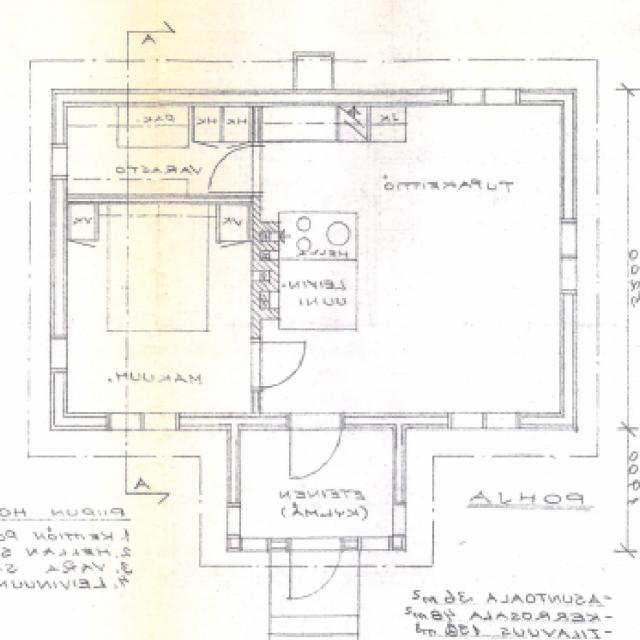 A
PAK.
HK
HK
JK
VARASTO
TUPAKEITTIÖ
VK
VK
HELLA
LEIVIN-
UUNI
MAKUUH.
A
ETEINEN
(KYLMÄ)
POHJA
PIIPUN HO
1. KEITTIÖN PO
2. HELLAN S
3. VARA S
4. LEIVINUUN
-ASUNTOALA 36 m²
-KERROSALA 48 m²
-TILAVUUS 130 m³